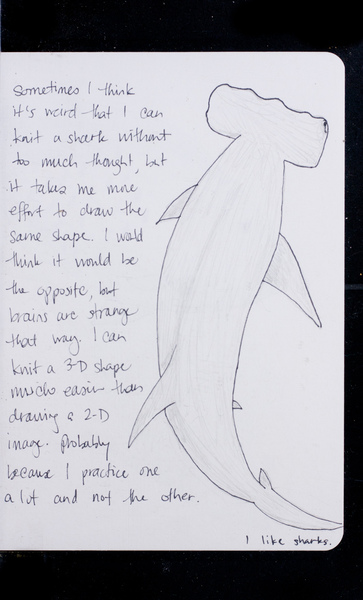 Sometimes I think
it's weird that I can
knit a shark without
too much thought, but
it takes me more
effort to draw the
same shape. I would
think it would be
the opposite, but
brains are strange
that way. I can
knit a 3-D shape
much easier than
drawing a 2-D
image. Probably
because I practice one
a lot and not the other.
I like sharks.